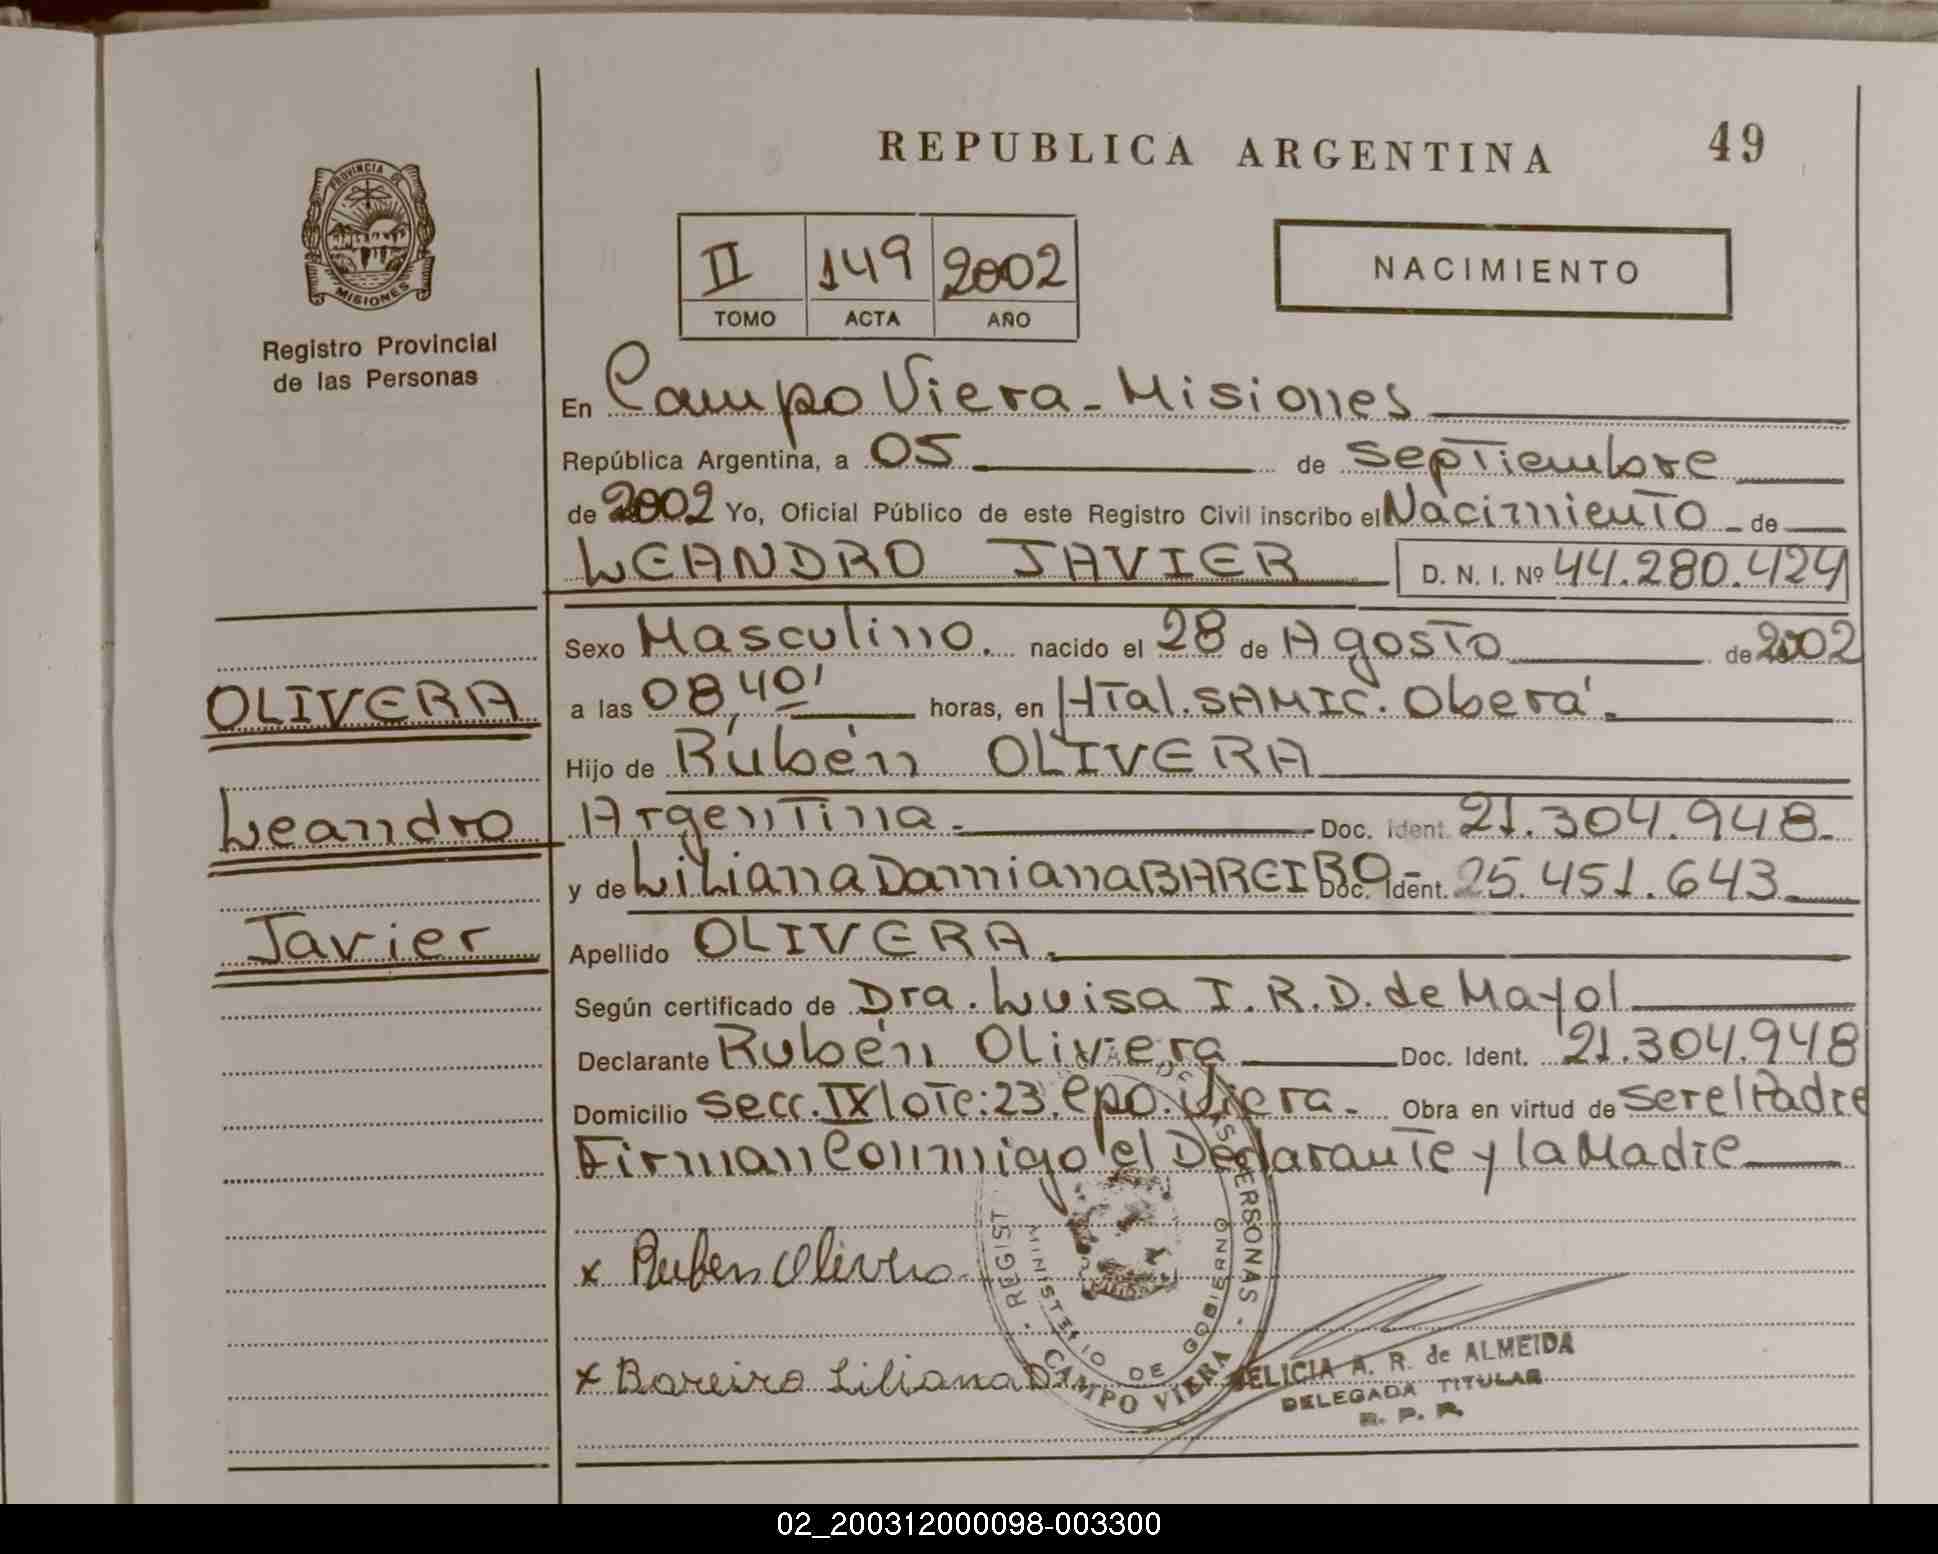 REPUBLICA ARGENTINA
49
PROVINCIA DE
MISIONES
Registro Provincial
de las Personas
II 149 2002
TOMO ACTA AÑO
NACIMIENTO
En Campo Viera - Misiones
República Argentina, a 05 de Septiembre
de 2002 Yo, Oficial Público de este Registro Civil inscribo el Nacimiento - de
LEANDRO JAVIER D. N. I. Nº 44.280.424
Sexo Masculino. nacido el 28 de Agosto de 2002
OLIVERA
a las 08,40' horas, en Htal. SAMIC. Oberá.
Hijo de Rubén OLIVERA
Leandro
Argentina - Doc. Ident. 21.304.948.
y de Liliana Damiana BAREIRO - Doc. Ident. 25.451.643
Javier
Apellido OLIVERA.
Según certificado de Dra. Luisa I. R. D. de Mayol
Declarante Rubén Olivera Doc. Ident. 21.304.948
Domicilio secc. IX lote: 23. Cpo. Viera. Obra en virtud de ser el Padre
Firman Conmigo el Declarante y la Madre
x Ruben Olivera
x Bareiro Liliana D.
REGIST PERSONAS
MINISTERIO DE GOBIERNO
CAMPO VIERA
DELICIA A. R. de ALMEIDA
DELEGADA TITULAR
R. P. P.
02_200312000098-003300